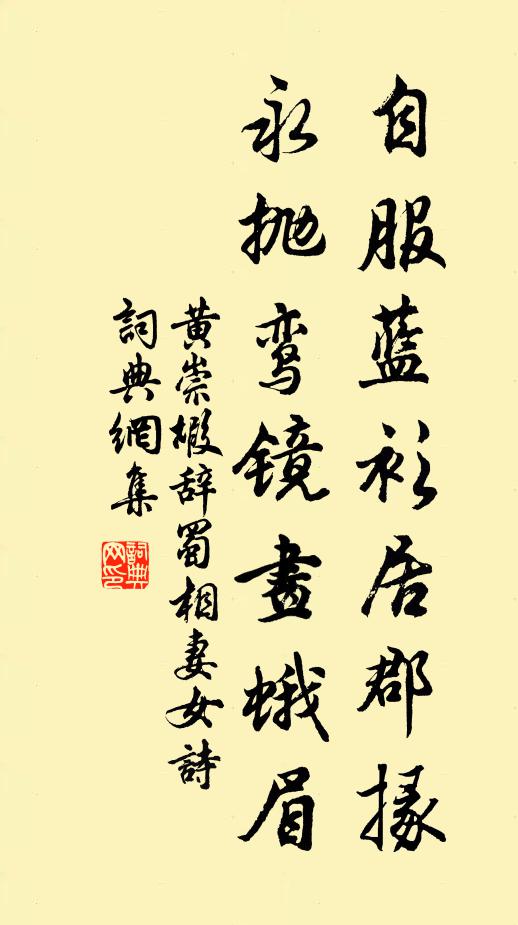 自服藍衫居郡掾
永拋鸞鏡畫蛾眉
黃崇嘏辭蜀相妻女詩
詞典網集
詞典網印